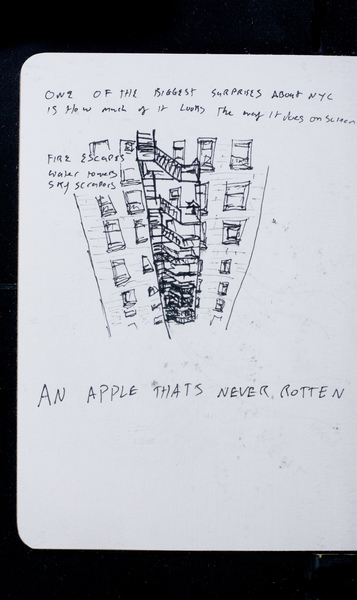 ONE OF THE BIGGEST SURPRISES ABOUT NYC
IS HOW much of it Looks The way it does on screen
FIRE ESCAPES
Water towers
Sky scrapers
AN APPLE THATS NEVER ROTTEN